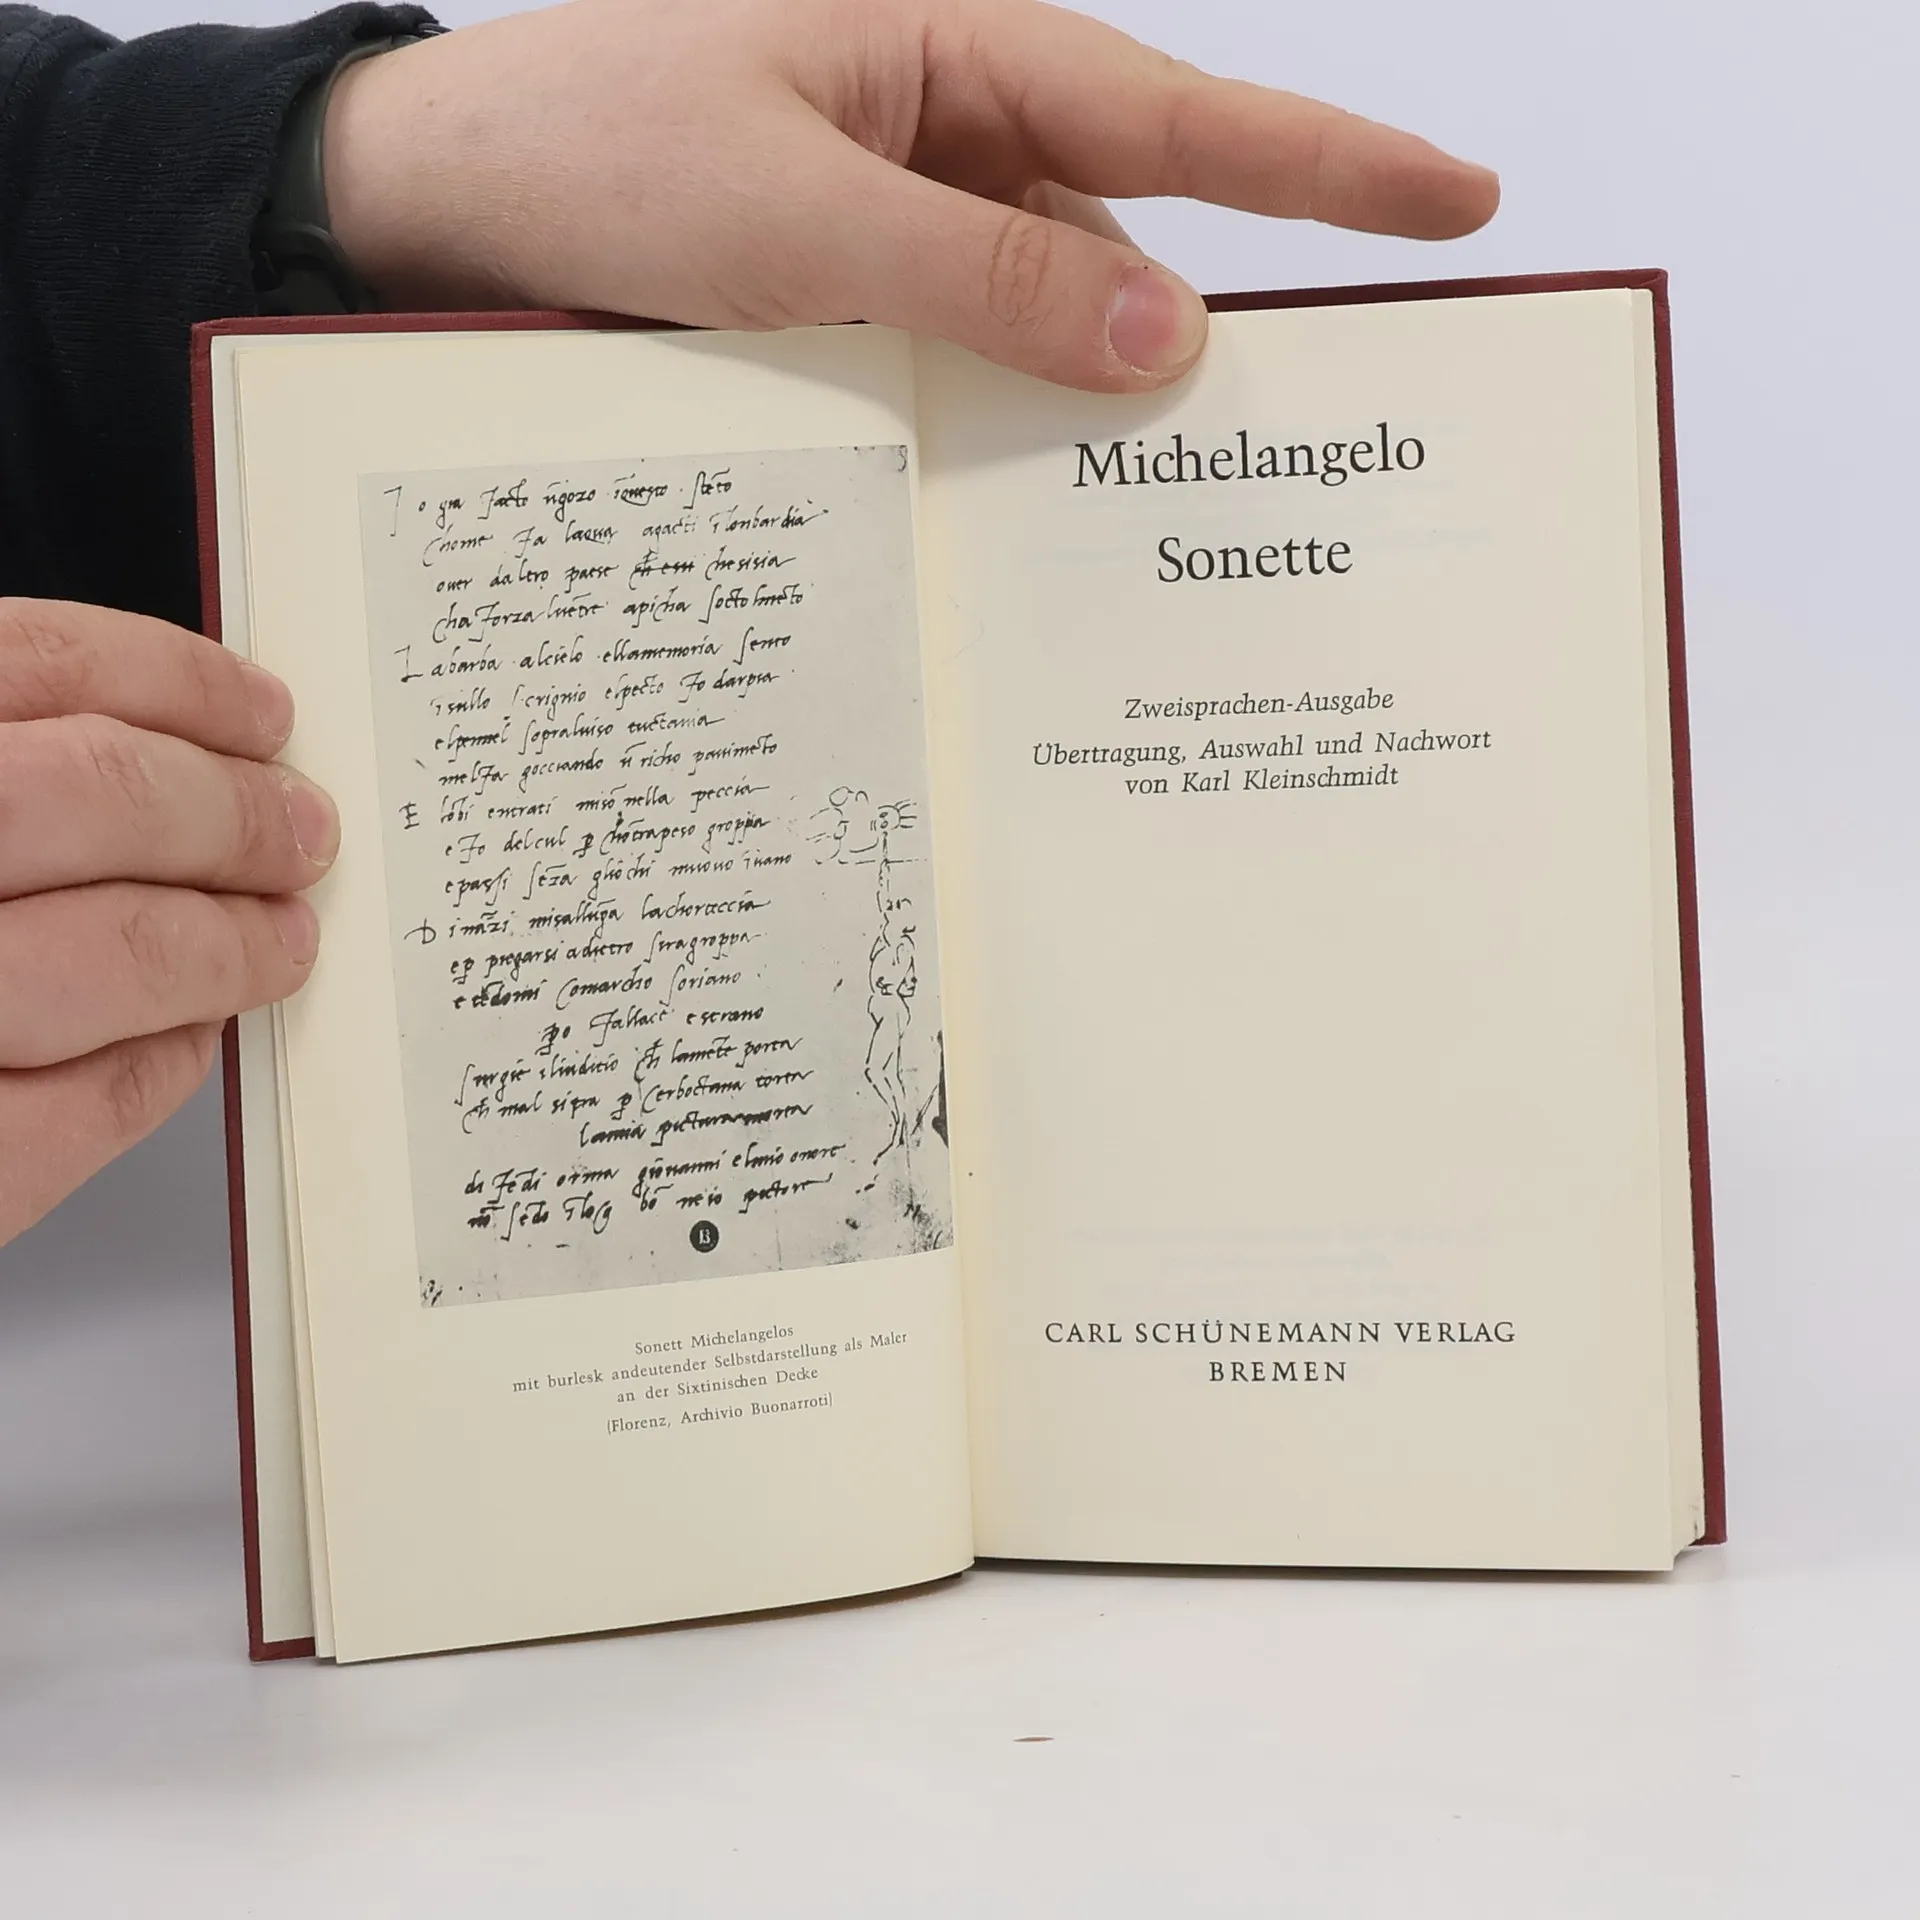 I o gia facto ũgozo ĩquesto stẽto
chome fa laqua agacti ĩlonbardia
over daltro paese chesisia
cha forza luẽtre apicha socto lmẽto
La barba alcielo ellamemoria sento
ĩsullo scrignio elpecto fo darpia
elpennel sopraluiso tuctauia
melfa gocciando ũ richo pauimẽto
E lobi entrati miso nella peccia
e fo delcul ꝑ chõtrapeso groppa
e passi sẽza gliochi muouo ĩuano
Dinãzi misallũga lachorteccia
e ꝑ piegarsi adietro siragroppa
e tẽdomi comarcho soriano
ꝑo fallace e strano
surgie iliuditio lamẽte porta
mal ꝑ cerboctana torta
lamia pictura morta
di orma giouanni elmio onore
nõ sẽdo bõ ne io pictore
13
Sonett Michelangelos
mit burlesk andeutender Selbstdarstellung als Maler
an der Sixtinischen Decke
(Florenz, Archivio Buonarroti)
Michelangelo
Sonette
Zweisprachen-Ausgabe
Übertragung, Auswahl und Nachwort
von Karl Kleinschmidt
CARL SCHÜNEMANN VERLAG
BREMEN